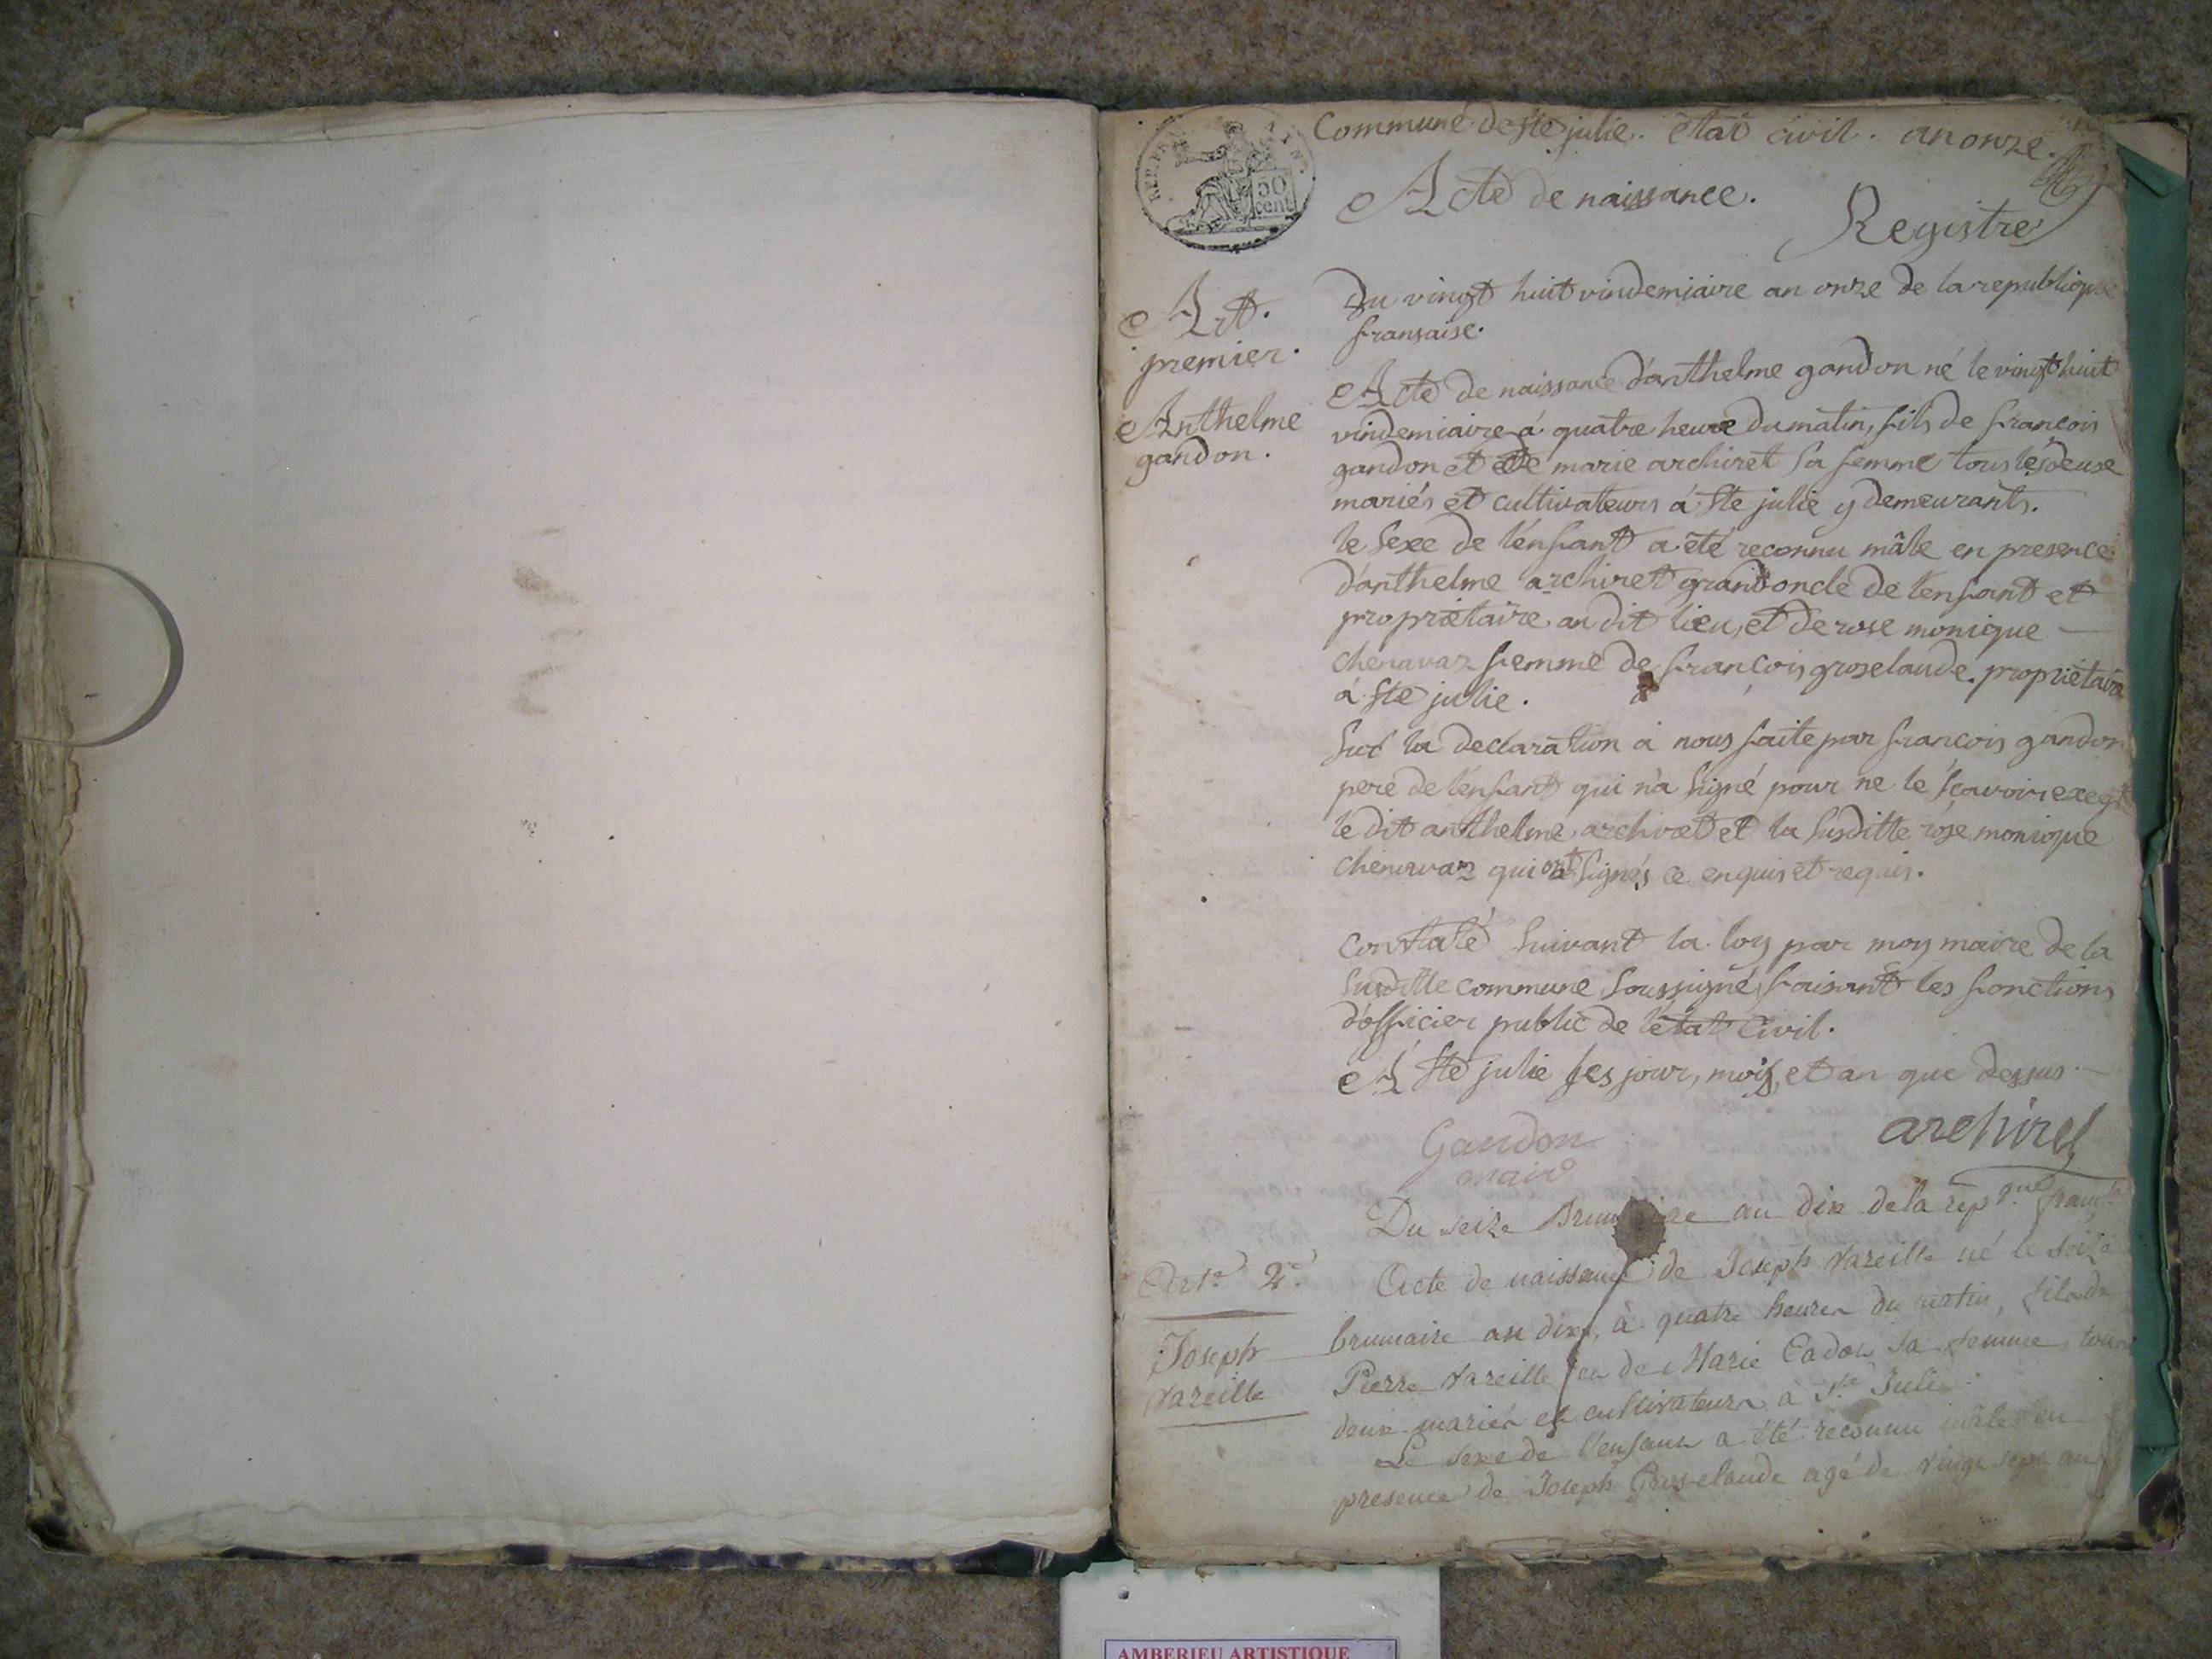 Commune de Ste julie. état civil. an onze.
REP. FRA
50
cent
Acte de naissance.
Registre
Art.
premier.
Anthelme
gandon.
Du vingt huit vindemiaire an onze de la republique
fransaise.
Acte de naissance d'anthelme gandon né le vingt huit
vindemiaire á quatre heure du matin, fils de francois
gandon et de marie archiret sa femme tous les deuxe
mariés et cultivateurs á Ste julie y demeurants.
le sexe de l'enfant a été reconnu mâle en presence
d'anthelme archiret grand oncle de l'enfant et
propriétaire au dit lieu, et de rose monique
chenavaz femme de françois groselaude. propriétaire
á Ste julie.
Sur la declaration a nous faite par francois gandon
pere de l'enfant qui n'a signé pour ne le sçavoir
le dit anthelme archiret et la susditte rose monique
chenavaz qui ont signés ce enquis et requis.
Constaté suivant la loy par moy maire de la
susditte commune soussigné, faisant les fonctions
d'officier public de l'état civil.
A Ste julie les jour, mois, et an que dessus.
Gandon
maire
archiret
Du seize Brumaire an dix de la repque franç
Arte 2e.
Joseph
Vareille
Acte de naissance de Joseph Vareille né le seize
brumaire an dix, à quatre heures du matin, fils de
Pierre Vareille et de Marie Cadot sa femme tous
deux mariés et cultivateurs à Ste Julie
Le sexe de l'enfant a été reconnu mâle en
presence de Joseph Groselaude agé de vingt sept ans
AMBERIEU ARTISTIQUE